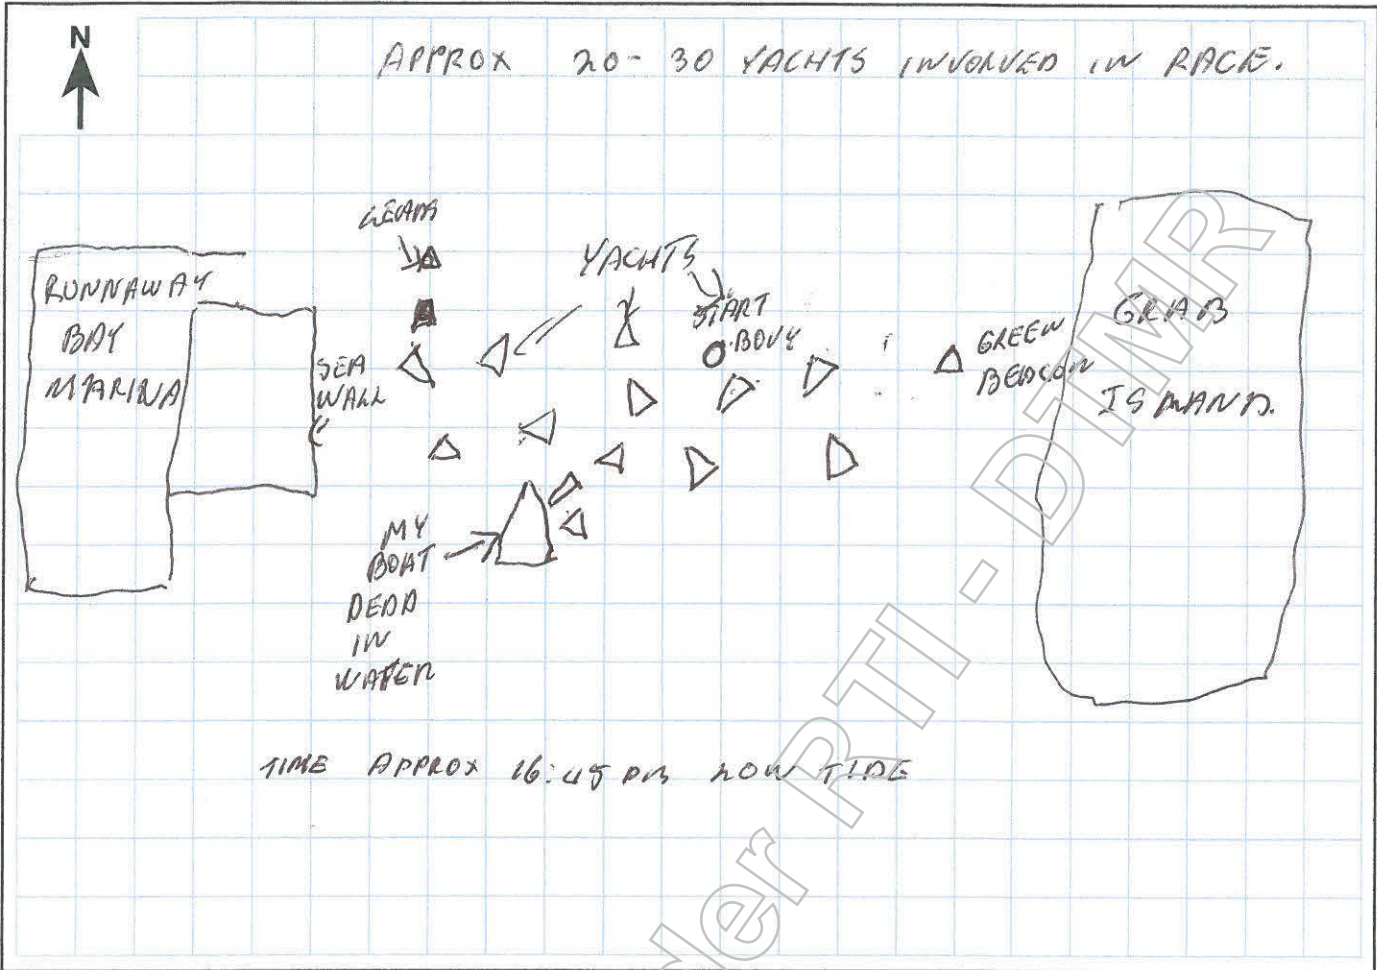 N
APPROX 20-30 YACHTS INVOLVED IN RACE.
LEADS
YACHTS
RUNNAWAY
BAY
MARINA
START
BOUY
GREEN
BEACON
GRAB
ISLAND.
SEA
WALL
MY
BOAT
DEAD
IN
WATER
TIME APPROX 16:45 PM LOW TIDE
der RTI - DTMR